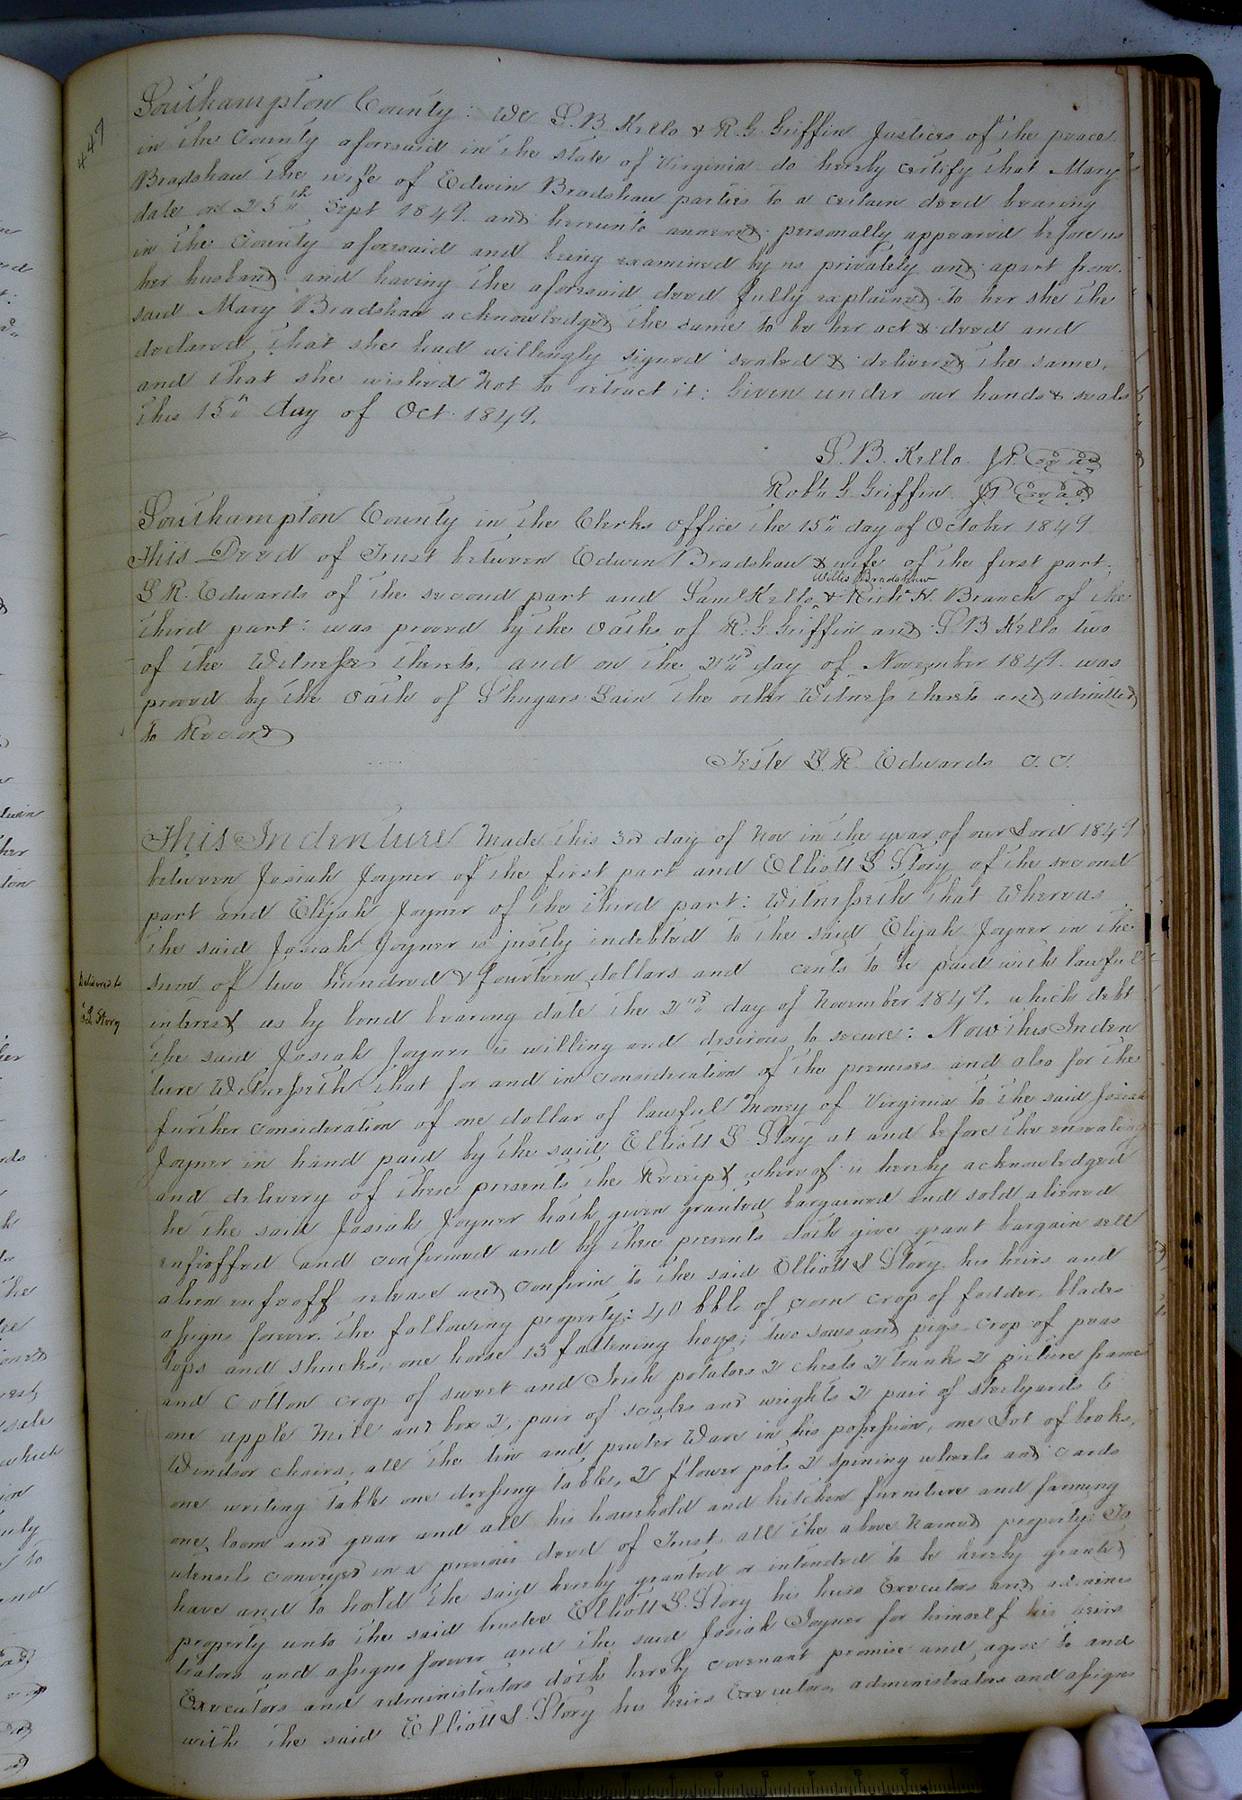 447
Southampton County: We S. B. Kello & R. G. Griffin Justices of the peace
in the County aforesaid in the state of Virginia do hereby certify that Mary
Bradshaw the wife of Edwin Bradshaw parties to a certain deed bearing
date on 25th Sept 1849. and hereunto annexed personally appeared before us
in the County aforesaid and being examined by us privately and apart from
her husband and having the aforesaid deed fully explained to her she the
said Mary Bradshaw acknowledged the same to be her act & deed and
declared, that she had willingly signed sealed & delivered the same,
and that she wished not to retract it: Given under our hands & seals
this 15" day of Oct. 1849.
S. B. Kello. JP. Seal
Robt. G Griffin JP Seal
Southampton County in the Clerks office the 15" day of October 1849
This Deed of Trust between Edwin Bradshaw & wife of the first part,
Willis Bradshaw
L R. Edwards of the second part and Saml Kello, & Richd H. Branch of the
third part: was proved by the oaths of R. G Griffin and S B Kello two
of the Witnesses thereto, and on the 2nd day of November 1849 was
proved by the oath of Shugars Lain the other Witness thereto and admitted
to Record
Teste L. R. Edwards C. C.
This Indenture Made this 3rd day of Nov in the year of our Lord 1849
between Josiah Joyner of the first part and Elliott L Story of the second
part and Elijah Joyner of the third part: Witnesseth that Whereas
the said Josiah Joyner is justly indebted to the said Elijah Joyner in the
Delivered to
E L Story
sum of two hundred & fourteen dollars and cents to be paid with lawful
interest as by bond bearing date the 2nd day of November 1849. which debt
the said Josiah Joyner is willing and desirous to secure: Now this Inden
ture Witnesseth that for and in consideration of the premises and also for the
further consideration of one dollar of lawful money of Virginia to the said Josiah
Joyner in hand paid by the said Elliott L Story at and before the ensealing
and delivery of these presents the Receipt whereof is hereby acknowledged
he the said Josiah Joyner hath given granted bargained and sold aliened
enfeoffed and confirmed and by these presents doth give grant bargain sell
alien enfeoff release and confirm to the said Elliott L Story his heirs and
assigns forever. the following property: 40 bbls of corn crop of fodder, blades
tops and shucks, one horse 13 fattening hogs, two sows and pigs crop of peas
and Cotton crop of sweet and Irish potatoes 2 chests 2 trunks 2 picture frames
one apple mill and box 2, pair of scales and weights 2 pair of steelyards 6
Windsor chairs, all the tin and pewter Ware in his possession, one Lot of books,
one writing table one dressing table, 2 flower pots 2 spining wheels and cards
one loom and gear and all his household and kitchen furniture and farming
utensils conveyed in a previous deed of Trust all the above named property: To
have and to hold the said hereby granted or intended to be hereby granted
property unto the said trustee Elliott L. Story his heirs Executors and adminis
trators and assigns forever and the said Josiah Joyner for himself his heirs
Executors and administrators doth hereby covenant promise and agree to and
with the said Elliott L. Story his heirs Executors administrators and assigns